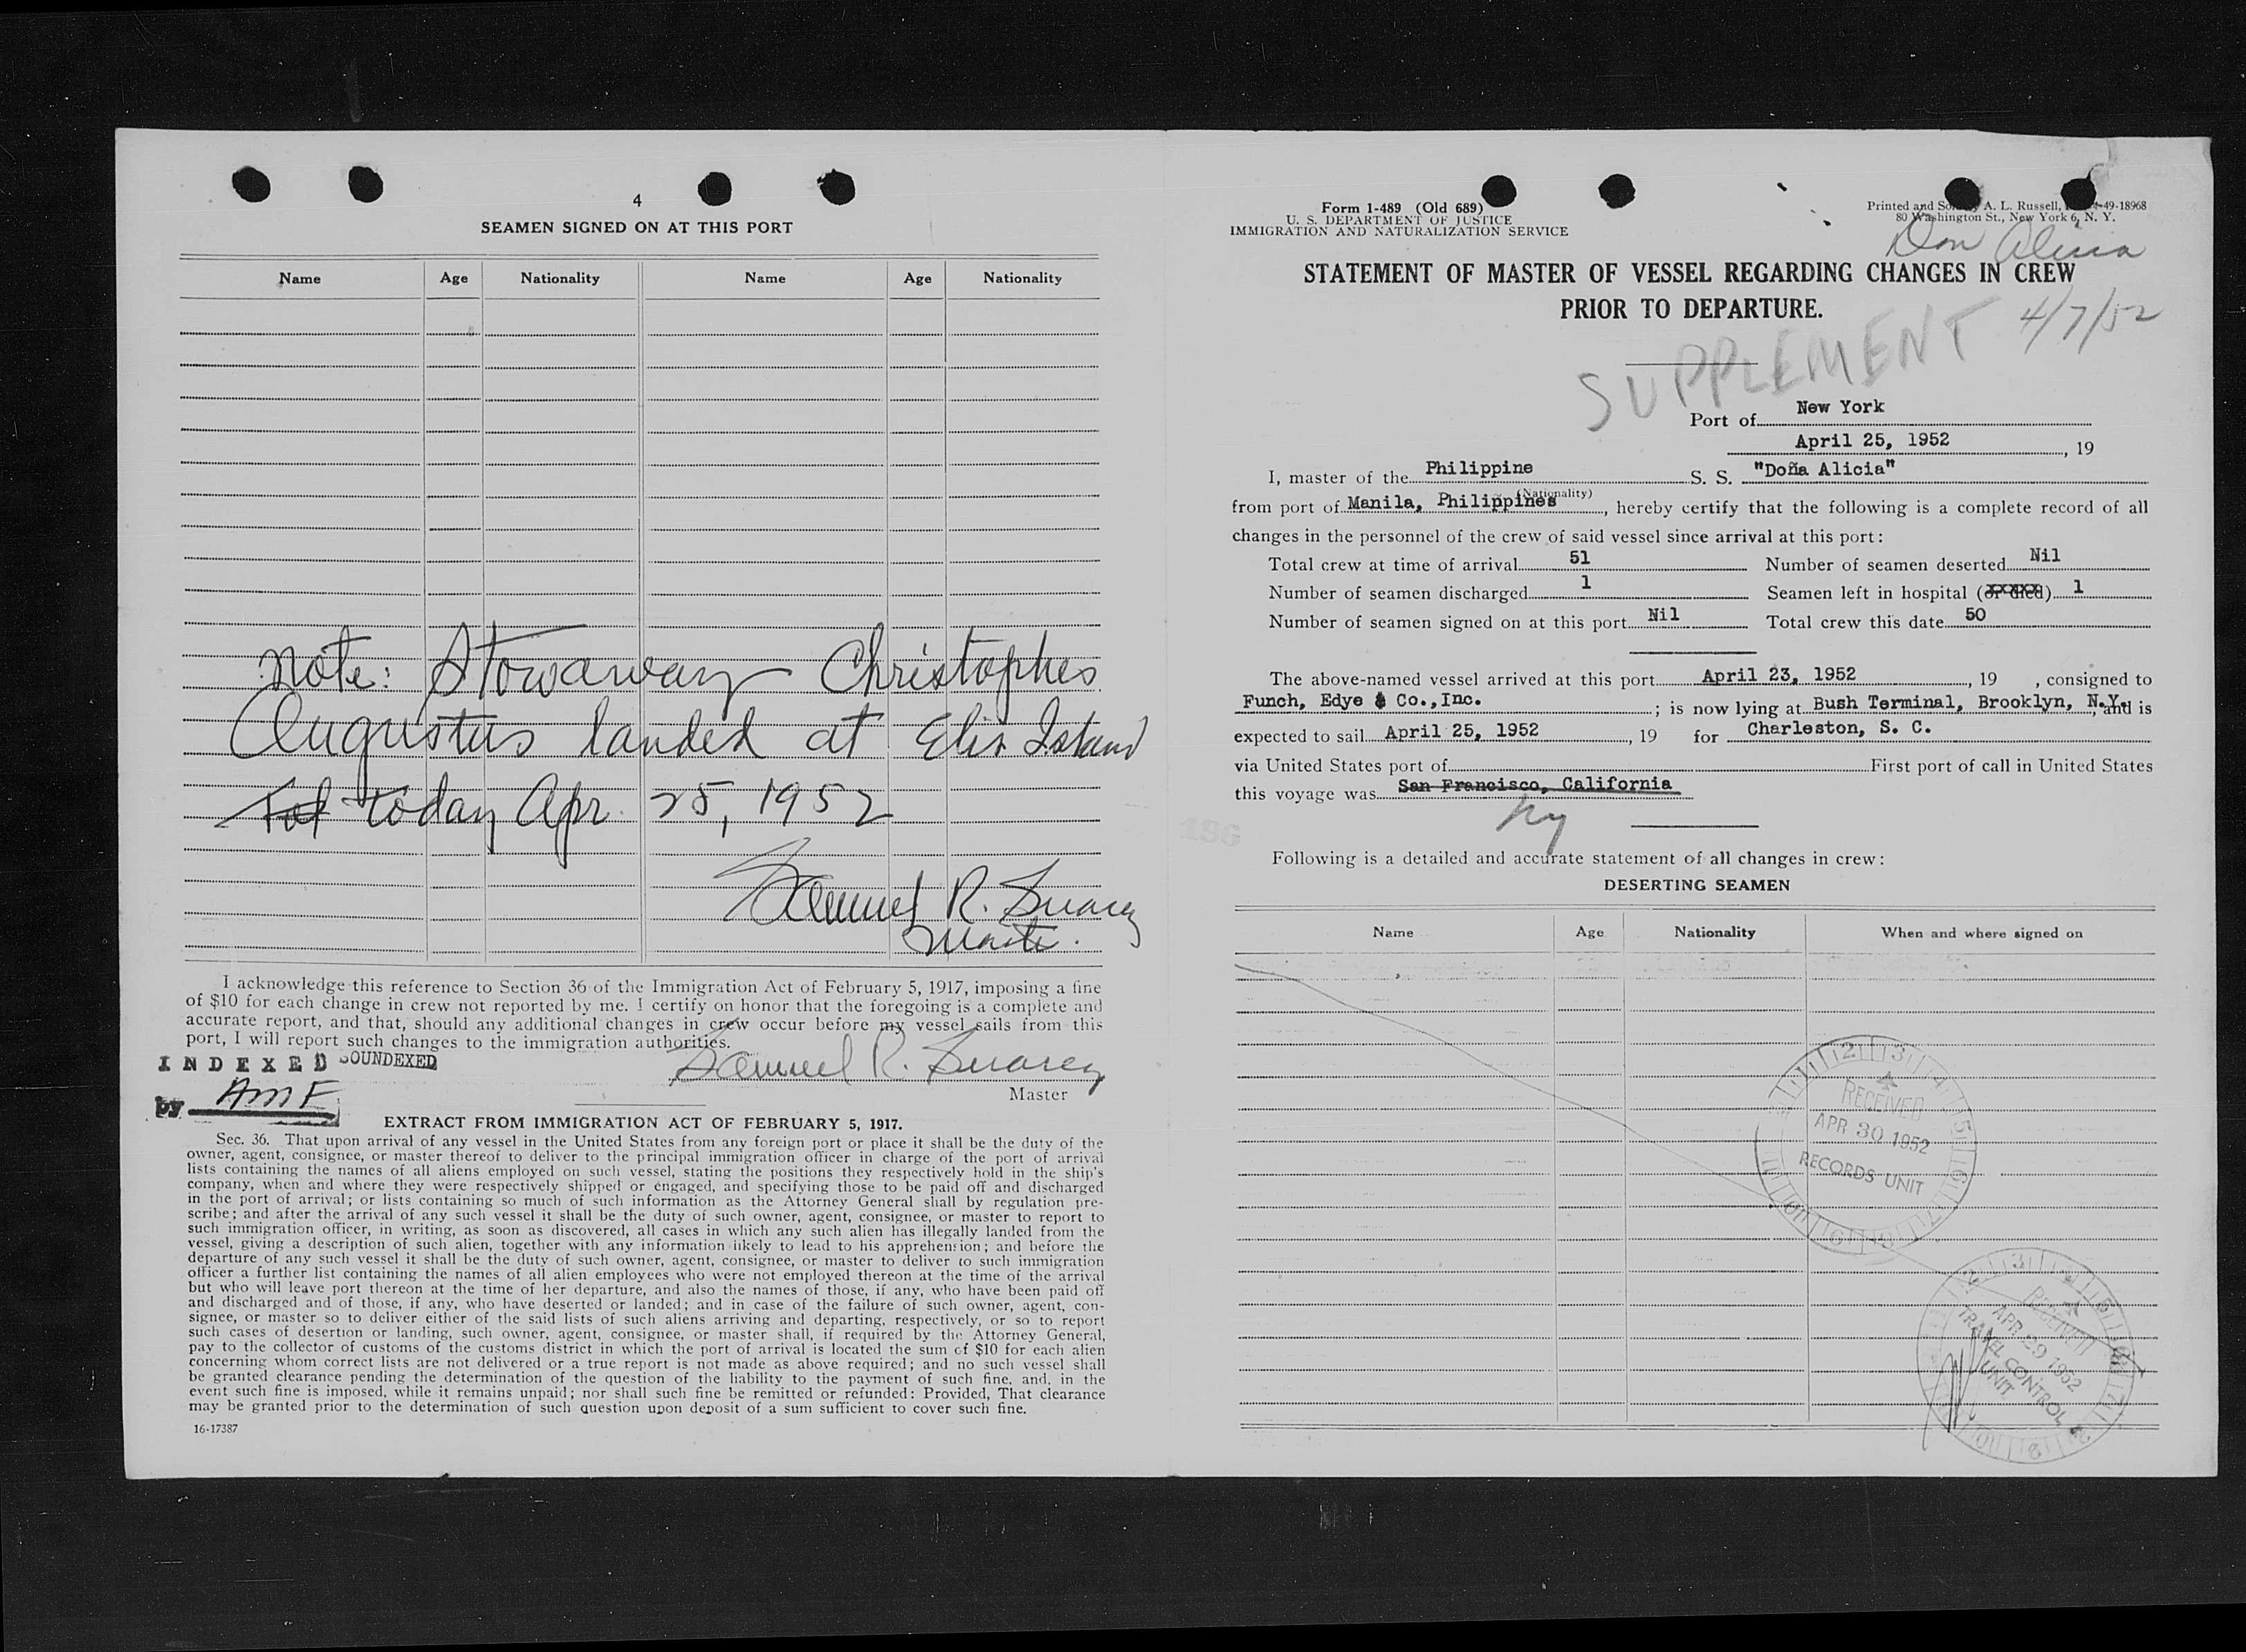 4
SEAMEN SIGNED ON AT THIS PORT
Name Age Nationality Name Age Nationality
Note: Stowaway Christophes
Augustus landed at Elis Island
today Apr. 25, 1952
Samuel R. Suarez
Master.
I acknowledge this reference to Section 36 of the Immigration Act of February 5, 1917, imposing a fine
of $10 for each change in crew not reported by me. I certify on honor that the foregoing is a complete and
accurate report, and that, should any additional changes in crew occur before my vessel sails from this
port, I will report such changes to the immigration authorities.
INDEXED SOUNDEXED
Samuel R. Suarez
Master
by AMF
EXTRACT FROM IMMIGRATION ACT OF FEBRUARY 5, 1917.
Sec. 36. That upon arrival of any vessel in the United States from any foreign port or place it shall be the duty of the
owner, agent, consignee, or master thereof to deliver to the principal immigration officer in charge of the port of arrival
lists containing the names of all aliens employed on such vessel, stating the positions they respectively hold in the ship's
company, when and where they were respectively shipped or engaged, and specifying those to be paid off and discharged
in the port of arrival; or lists containing so much of such information as the Attorney General shall by regulation pre-
scribe; and after the arrival of any such vessel it shall be the duty of such owner, agent, consignee, or master to report to
such immigration officer, in writing, as soon as discovered, all cases in which any such alien has illegally landed from the
vessel, giving a description of such alien, together with any information likely to lead to his apprehension; and before the
departure of any such vessel it shall be the duty of such owner, agent, consignee, or master to deliver to such immigration
officer a further list containing the names of all alien employees who were not employed thereon at the time of the arrival
but who will leave port thereon at the time of her departure, and also the names of those, if any, who have been paid off
and discharged and of those, if any, who have deserted or landed; and in case of the failure of such owner, agent, con-
signee, or master so to deliver either of the said lists of such aliens arriving and departing, respectively, or so to report
such cases of desertion or landing, such owner, agent, consignee, or master shall, if required by the Attorney General,
pay to the collector of customs of the customs district in which the port of arrival is located the sum of $10 for each alien
concerning whom correct lists are not delivered or a true report is not made as above required; and no such vessel shall
be granted clearance pending the determination of the question of the liability to the payment of such fine, and, in the
event such fine is imposed, while it remains unpaid; nor shall such fine be remitted or refunded: Provided, That clearance
may be granted prior to the determination of such question upon deposit of a sum sufficient to cover such fine.
16-17387
Form 1-489 (Old 689)
U. S. DEPARTMENT OF JUSTICE
IMMIGRATION AND NATURALIZATION SERVICE
Printed and A. L. Russell, 49-18968
80 Washington St., New York 6, N. Y.
Don Alicia
STATEMENT OF MASTER OF VESSEL REGARDING CHANGES IN CREW
PRIOR TO DEPARTURE.
SUPPLEMENT 4/7/52
Port of New York
April 25, 1952, 19
I, master of the Philippine S. S. "Doña Alicia"
(Nationality)
from port of Manila, Philippines, hereby certify that the following is a complete record of all
changes in the personnel of the crew of said vessel since arrival at this port:
Total crew at time of arrival 51 Number of seamen deserted Nil
Number of seamen discharged 1 Seamen left in hospital (or died) 1
Number of seamen signed on at this port Nil Total crew this date 50
The above-named vessel arrived at this port April 23, 1952, 19 , consigned to
Funch, Edye & Co., Inc. ; is now lying at Bush Terminal, Brooklyn, N.Y., and is
expected to sail April 25, 1952, 19 for Charleston, S. C.
via United States port of First port of call in United States
this voyage was San Francisco, California
NY
Following is a detailed and accurate statement of all changes in crew:
DESERTING SEAMEN
Name Age Nationality When and where signed on
RECEIVED
APR 30 1952
RECORDS UNIT
RECEIVED
APR 29 1952
TRAVEL CONTROL
UNIT